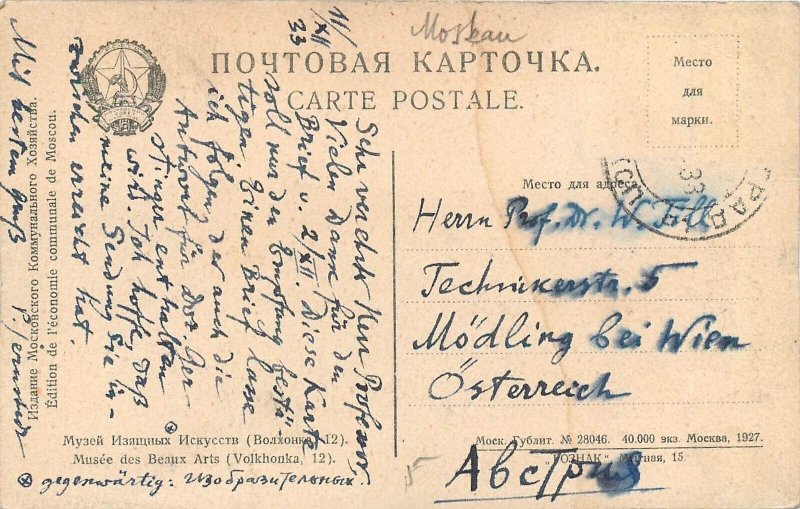 Moskau
ПОЧТОВАЯ КАРТОЧКА.
CARTE POSTALE.
Место
для
марки.
Место для адреса
Herrn Prof. Dr. W.
Technikerstr. 5
Mödling bei Wien
Österreich
Австрия
11/XII 33
Sehr verehrter Herr Professor
Vielen Dank für den
Brief v. 2/XII. Diese Karte
soll nur den Empfang bestä-
tigen. Einen Brief lasse
ich folgen, der auch die
Antwort für Doz. Ger-
stinger enthalten
wird. Ich hoffe, daß
meine Sendung Sie in-
zwischen erreicht hat.
Mit bestem Gruß
Издание Московского Коммунального Хозяйства.
Édition de l'économie communale de Moscou.
Музей Изящных Искусств (Волхонка, 12).
Musée des Beaux Arts (Volkhonka, 12).
gegenwärtig: Изобразительных.
Моск. Гублит. № 28046. 40.000 экз. Москва, 1927.
"ГОЗНАК" 15.